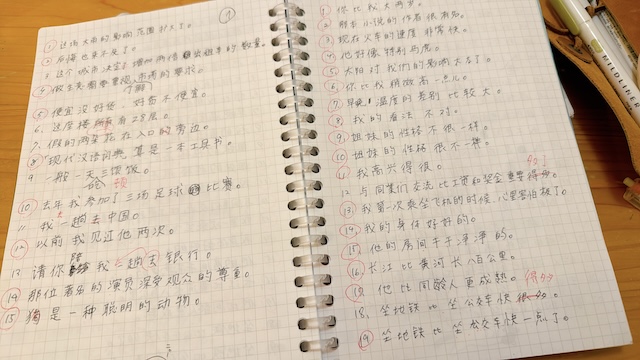 ①
① 这场大雨的影响范围扩大了。
② 后悔也来不及了。
3. 这个城市决定增加两倍出租车的数量。
④ 做生意需要重视市场的要求。
了解
⑤ 便宜没好货，好货不便宜。
6. 这座楼有25层。
7. 假的两朵花在入口的旁边。
⑧ 现代汉语词典算是一本工具书。
9 一般一天三顿饭。
⑩ 去年我参加了三场足球比赛。
11 我一趟去中国。
⑫ 以前我见过他两次。
13 请你陪我去趟银行。
⑭ 那位著名的演员深受观众的尊重。
⑮ 猫是一种聪明的动物。
① 你比我大两岁。
② 那本小说的作者很有名。
③ 现在火车的速度非常快。
④ 他好像特别马虎。
⑤ 太阳对我们的影响太大了。
⑥ 你比我稍微高一点儿。
⑦ 早晚温度的差别比较大。
⑧ 我的看法不对。
⑨ 姐妹的性格不很一样。
⑩ 姐妹的性格很不一样。
11 我高兴得很。
12 与同事们交流比工资和奖金重要得
多
⑬ 我第一次乘坐飞机的时候，心里害怕极了。
⑭ 我的身体好好的。
⑮ 他的房间干干净净的。
⑯ 长江比黄河长八百公里。
⑰ 他比同龄人更成熟。
得多
18. 坐地铁比坐公交车快很多。
⑲ 坐地铁比坐公交车快一点了。
MILDLINER